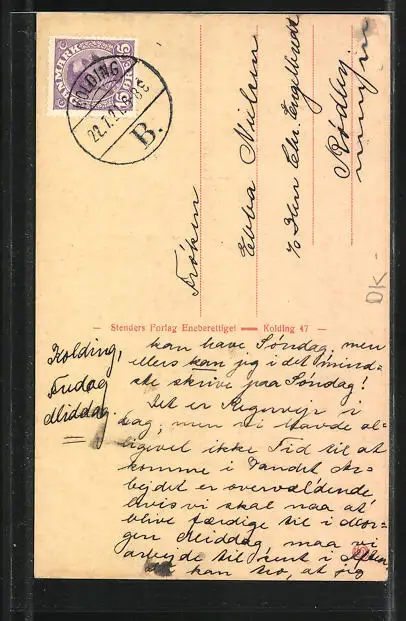 DANMARK
15 ØRE 15
KOLDING
B.
Frøken
Ebba Nielsen
Rødby
DK-
— Stenders Forlag Eneberettiget — Kolding 47 —
Kolding,
Middag.
kan have Søndag, men
ellers kan jeg i det mind-
ste skrive paa Søndag!
Det er Regnvejr i
dag, men vi havde al-
ligevel ikke Tid til at
komme i Vandet. Ar-
bejdet er overvældende
hvis vi skal naa at
blive færdige til i Mor-
gen Middag maa vi
arbejde til sent i Aften
kan tro, at jeg